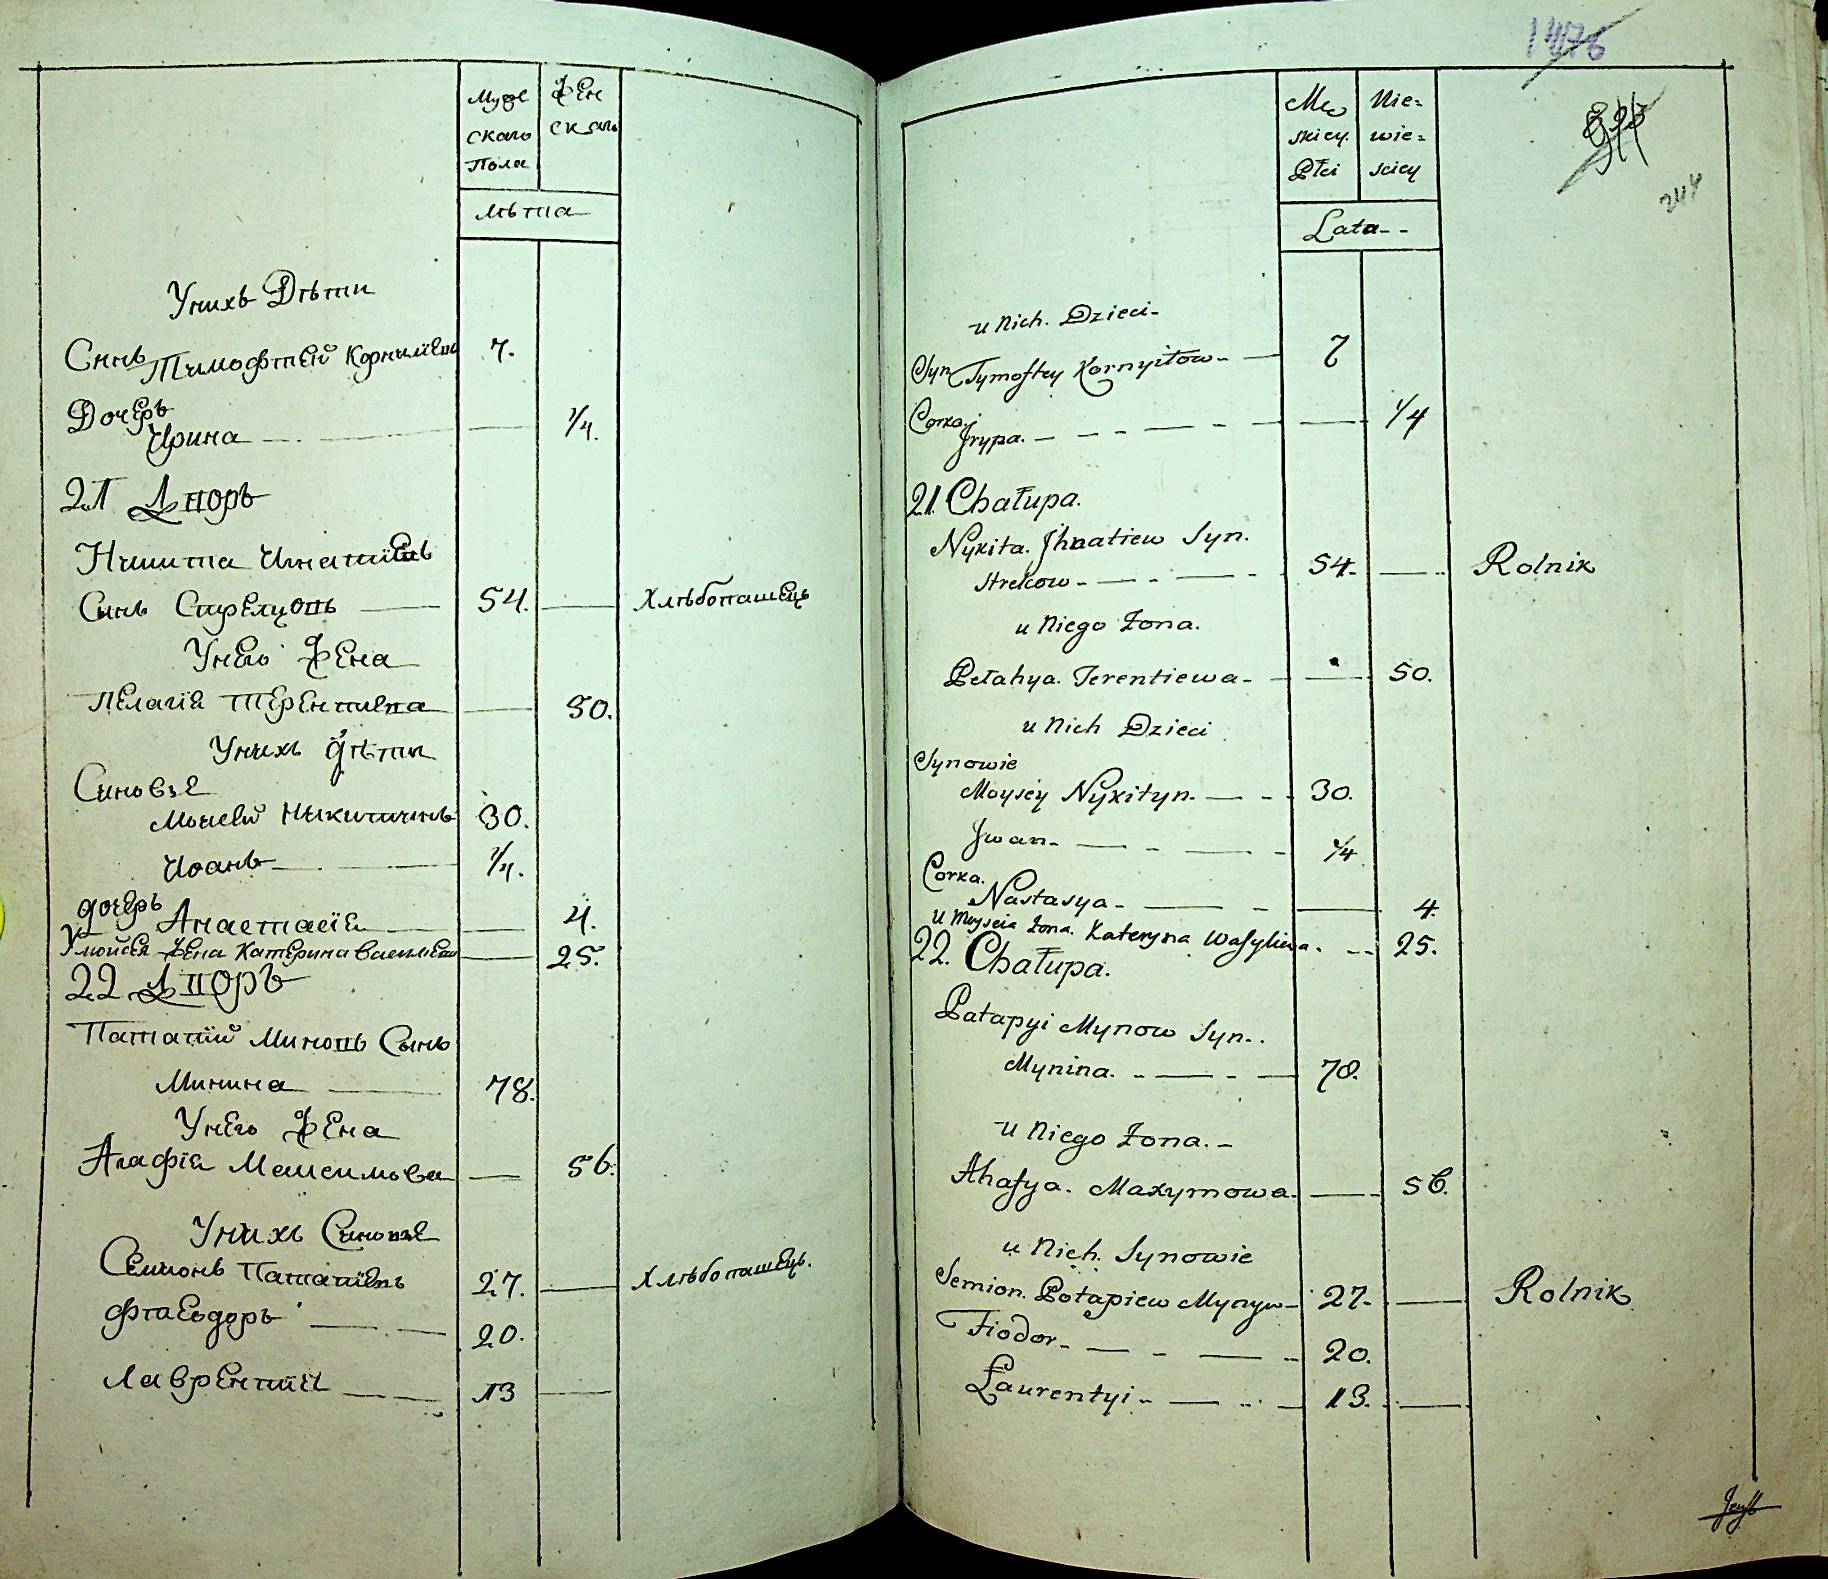 Мужескаго Пола
Женскаго
Лѣта
Унихъ Дѣти
Синъ Тимофтей Корнилиевъ 7.
Дочерь
Ирина 1/4.
21 Дворъ
Никита Игнатиевъ
Синъ Стрелцовъ 54. Хлѣбопашецъ
Унего Жена
Пелагiя Терентиева 50.
Унихъ дѣти
Синовья
Мосией Никитинъ 30.
Иоанъ 1/4.
дочерь Анастасiя 4.
Умойсея Жена Катерина Василиева 25.
22 Дворъ
Патапий Миновъ Сынъ
Минина 78.
Унего Жена
Агафiя Максимова 56.
Унихъ Синовье
Семионъ Патапиевъ 27. Хлѣбопашецъ.
Фтаеодоръ 20.
Лаврентий 13
1476
244
Męskiey Płci
Niewiesciey
Lata--
u Nich. Dzieci-
Syn Tymoftey Kornyiłow- 7
Corka,
Jrypa. 1/4
21. Chałupa.
Nykita. Jhnatiew Syn.
Strelcow- 54. Rolnik
u Niego Żona.
Pełahya. Terentiewa- 50.
u Nich Dzieci
Synowie
Moysey Nykityn. 30.
Jwan- 1/4
Corka.
Nastasya- 4.
U Moyseia Żona. Kateryna Wasyliewa. 25.
22. Chałupa.
Patapyi Mynow Syn..
Mynina. 78.
u Niego Żona.-
Ahafya. Maxymowa. 56.
u Nich. Synowie
Semion. Potapiew Mynyn- 27. Rolnik
Fiodor- 20.
Łaurentyi- 13.